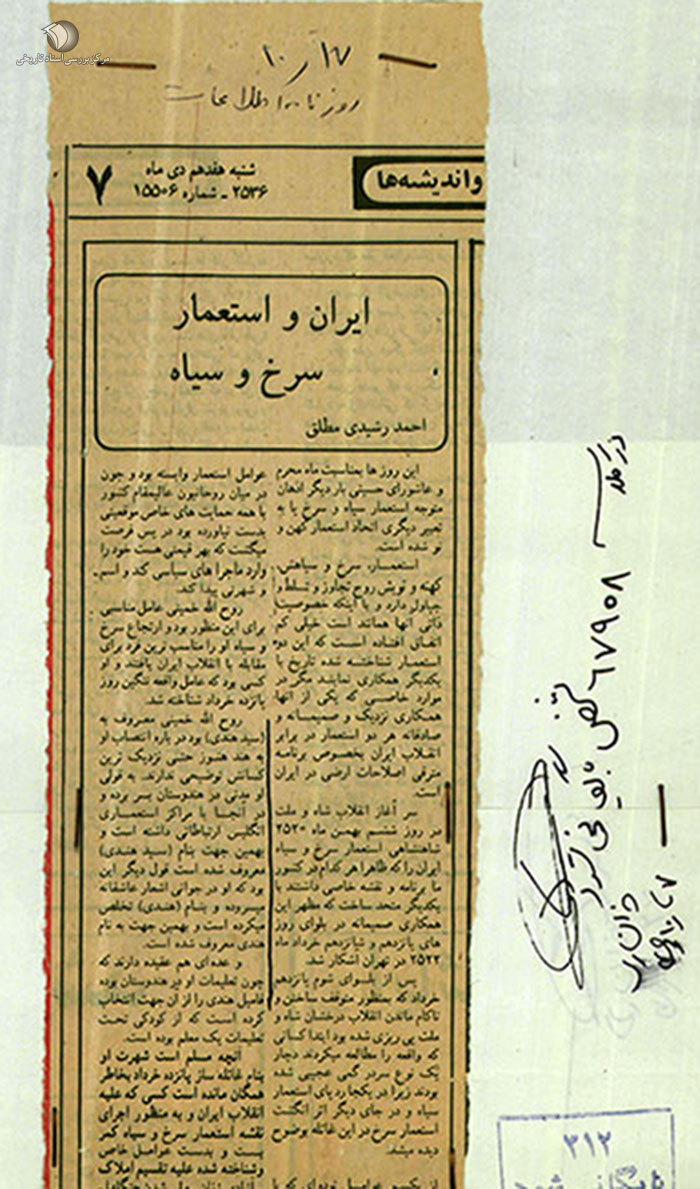 مرکز بررسی اسناد تاریخی
۱۰ر۱۷
روزنامه اطلاعات
واندیشه‌ها
شنبه هفدهم دی ماه
۲۵۳۶ ـ شماره ۱۵۵۰۶
۷
ایران و استعمار
سرخ و سیاه
احمد رشیدی مطلق
این روز ها بمناسبت ماه محرم
و عاشورای حسینی بار دیگر اذهان
متوجه استعمار سیاه و سرخ یا به
تعبیر دیگری اتحاد استعمار کهن و
نو شده است.
استعمار، سرخ و سیاهش،
کهنه و نویش روح تجاوز و تسلط و
چپاول دارد و با اینکه خصوصیت
ذاتی آنها همانند است خیلی کم
اتفاق افتاده است که این دو
استعمار شناخته شده تاریخ با
یکدیگر همکاری نمایند مگر در
موارد خاصی که یکی از آنها
همکاری نزدیک و صمیمانه و
صادقانه هر دو استعمار در برابر
انقلاب ایران بخصوص برنامه
مترقی اصلاحات ارضی در ایران
است.
سر آغاز انقلاب شاه و ملت
در روز ششم بهمن ماه ۲۵۲۰
شاهنشاهی استعمار سرخ و سیاه
ایران را که ظاهرا هر کدام در کشور
ما برنامه و نقشه خاصی داشتند با
یکدیگر متحد ساخت که مظهر این
همکاری صمیمانه در بلوای روز
های پانزدهم و شانزدهم خرداد ماه
۲۵۲۲ در تهران آشکار شد.
پس از بلوای شوم پانزدهم
خرداد که بمنظور متوقف ساختن و
ناکام ماندن انقلاب درخشان شاه و
ملت پی ریزی شده بود ابتدا کسانی
که واقعه را مطالعه میکردند دچار
یک نوع سردر گمی عجیبی شده
بودند زیرا در یکجا رد پای استعمار
سیاه و در جای دیگر اثر انگشت
استعمار سرخ در این غائله بوضوح
دیده میشد.
عوامل استعمار وابسته بود و چون
در میان روحانیون عالیمقام کشور
با همه حمایت های خاص موقعیتی
بدست نیاورده بود در پس فرصت
میگشت که بهر قیمتی هست خود را
وارد ماجرا های سیاسی کند و اسم
و شهرتی پیدا کند.
روح الله خمینی عامل مناسبی
برای این منظور بود و ارتجاع سرخ
و سیاه او را مناسب ترین فرد برای
مقابله با انقلاب ایران یافتند و او
کسی بود که عامل واقعه ننگین روز
پانزده خرداد شناخته شد.
روح الله خمینی معروف به
(سید هندی) بود در باره انتصاب او
به هند هنوز حتی نزدیک ترین
کسانش توضیحی ندارند. به قولی
او مدتی در هندوستان بسر برده و
در آنجا با مراکز استعماری
انگلیس ارتباطاتی داشته است و
بهمین جهت بنام (سید هندی)
معروف شده است قول دیگر این
بود که او در جوانی اشعار عاشقانه
میسروده و بنام (هندی) تخلص
میکرده است و بهمین جهت به نام
هندی معروف شده است.
و عده ای هم عقیده دارند که
چون تعلیمات او در هندوستان بوده
فامیل هندی را از آن جهت انتخاب
کرده است که از کودکی تحت
تعلیمات یک معلم بوده است.
آنچه مسلم است شهرت او
بنام غائله ساز پانزده خرداد بخاطر
همگان مانده است کسی که علیه
انقلاب ایران و به منظور اجرای
نقشه استعمار سرخ و سیاه کمر
بست و بدست عوامل خاص
وشناخته شده علیه تقسیم املاک
۶۷۹۰۸
۳۱۲